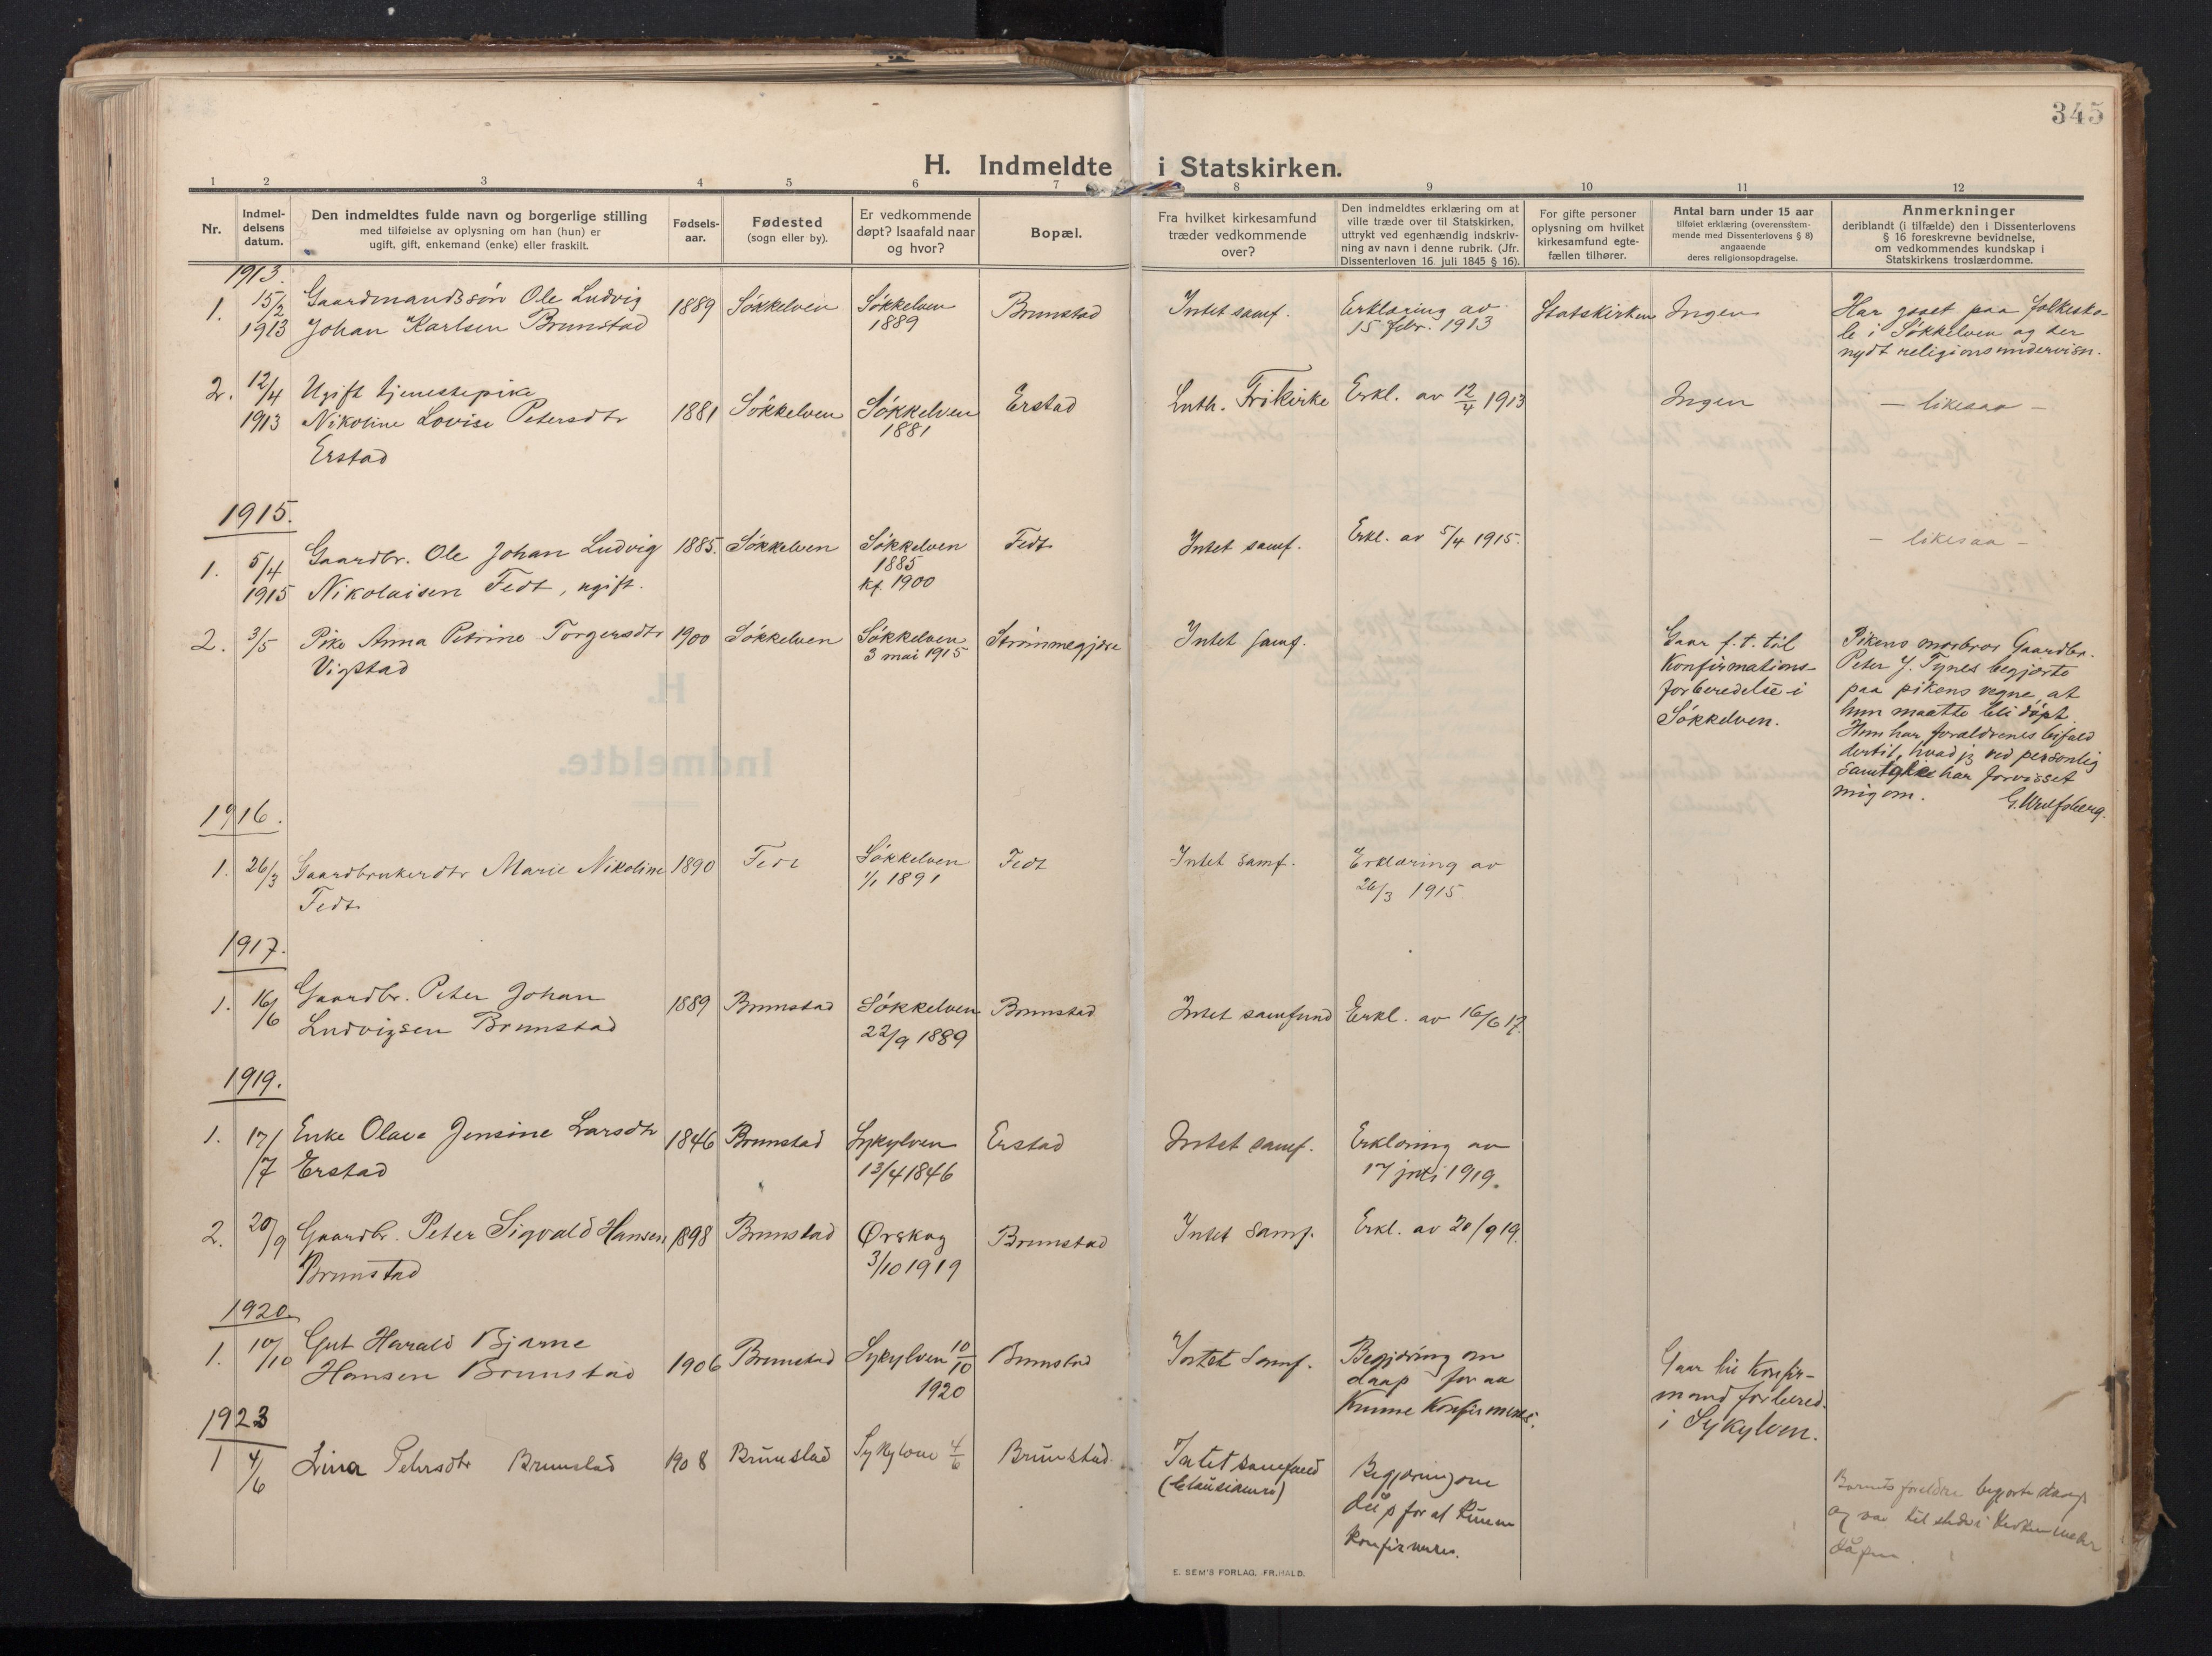 345
H. Indmeldte i Statskirken.
1 2 3 4 5 6 7 8 9 10 11 12
Nr.
Indmel-
delsens
datum.
Den indmeldtes fulde navn og borgerlige stilling
med tilføielse av oplysning om han (hun) er
ugift, gift, enkemand (enke) eller fraskilt.
Fødsels-
aar.
Fødested
(sogn eller by).
Er vedkommende
døpt? Isaafald naar
og hvor?
Bopæl.
Fra hvilket kirkesamfund
træder vedkommende
over?
Den indmeldtes erklæring om at
ville træde over til Statskirken,
uttrykt ved egenhændig indskriv-
ning av navn i denne rubrik. (Jfr.
Dissenterloven 16. juli 1845 § 16).
For gifte personer
oplysning om hvilket
kirkesamfund egte-
fællen tilhører.
Antal barn under 15 aar
tilføiet erklæring (overensstem-
mende med Dissenterlovens § 8)
angaaende
deres religionsopdragelse.
Anmerkninger
deriblandt (i tilfælde) den i Dissenterlovens
§ 16 foreskrevne bevidnelse,
om vedkommendes kundskap i
Statskirkens troslærdomme.
1913.
1.
15/2
1913
Gaardmandssön Ole Ludvig
Johan Karlsen Brunstad
1889
Søkkelven
Søkkelven
1889
Brunstad
Intet samf.
Erklæring av
15 febr. 1913
Statskirken
Ingen
Har gaaet paa folkesko-
le i Søkkelven og der
nydt religionsundervisn.
2.
12/4
1913
Ugift tjenestepike
Nikoline Lovise Petersdtr
Erstad
1881
Søkkelven
Søkkelven
1881
Erstad
Luth. Frikirke
Erkl. av 12/4 1913
Ingen
- likesaa -
1915.
1.
5/4
1915
Gaardbr. Ole Johan Ludvig
Nikolaisen Fedt, ugift.
1885.
Søkkelven
Søkkelven
1885
kf. 1900
Fedt
Intet samf.
Erkl. av 5/4 1915.
- likesaa -
2.
3/5
Pike Anna Petrine Torgersdtr
Vigstad
1900
Søkkelven
Søkkelven
3 mai 1915
Strømmegjære
Intet samf.
Gaar f. t. til
Konfirmations-
forberedelse i
Søkkelven.
Pikens morbror Gaardbr.
Peter J. Tynes begjærte
paa pikens vegne, at
hun maatte bli døpt.
Hun har forældrenes bifald
dertil, hvad jeg ved personlig
samtykke har forvisset
mig om. G. Wulfsberg.
1916.
1.
26/3
Gaardbrukerdtr Marie Nikoline
Fedt
1890
Fedt
Søkkelven
1/1 1891
Fedt
Intet samf.
Erklæring av
26/3 1915
1917.
1.
16/6
Gaardbr. Peter Johan
Ludvigsen Brunstad
1889
Brunstad
Søkkelven
22/9 1889
Brunstad
Intet samfund
Erkl. av 16/6 17.
1919.
1.
17/7
Enke Olave Jensine Larsdtr
Erstad
1846
Brunstad
Sykylven
13/4 1846
Erstad
Intet samf.
Erklæring av
17 juli 1919.
2.
20/9
Gaardbr. Peter Sigvald Hansen
Brunstad
1898
Brunstad
Ørskog
3/10 1919
Brunstad
Intet Samf.
Erkl. av 20/9 19.
1920
1.
10/10
Gut Harald Bjarne
Hansen Brunstad
1906
Brunstad
Sykylven 10/10
1920
Brunstad
Intet Samf.
Begjæring om
daap for aa
Kunne Konfirmeres.
Gaar til Konfir-
mand forbered.
i Sykylven.
1923
1
4/6
Lina Petersdtr Brunstad
1908
Brunstad
Sykylven 4/6
Brunstad.
Intet samfund
Begjæring om
dåp for at kunne
konfirmeres.
Barnets foreldre begjærte daap
og var til stede i kirken under
dåpen.
E. SEM'S FORLAG, FR.HALD.
H.
Indmeldte.